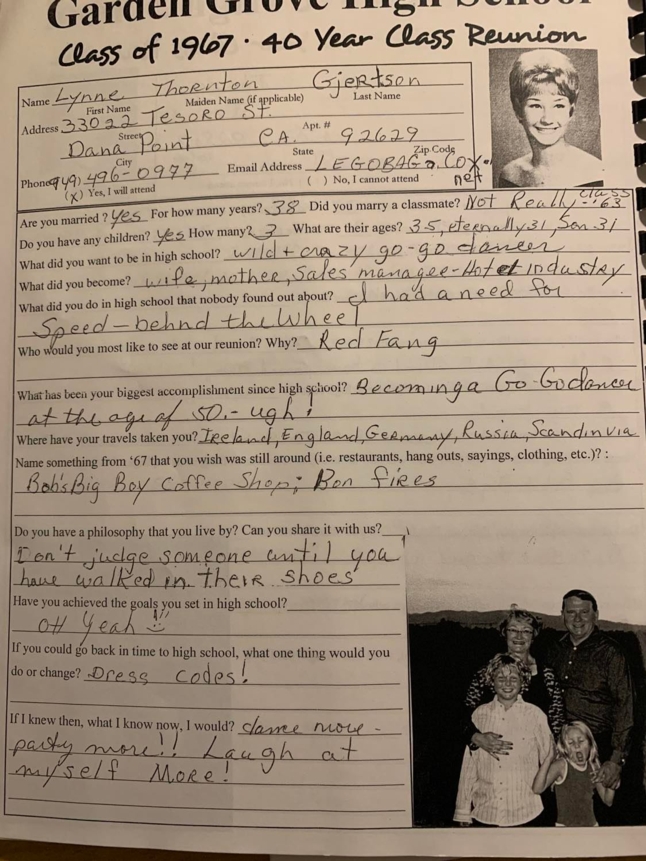 Garden Grove High School
Class of 1967 · 40 Year Class Reunion
Name Lynne Thornton Gjertson
First Name Maiden Name (if applicable) Last Name
Address 33022 Tesoro St.
Street Apt. #
Dana Point CA. 92629
City State Zip Code
Phone (949) 496-0977 Email Address LEGOBAG@COX.
net
(X) Yes, I will attend ( ) No, I cannot attend
Are you married? Yes For how many years? 38 Did you marry a classmate? Not Really - class '63
Do you have any children? Yes How many? 3 What are their ages? 35, eternally 31, Son 31
What did you want to be in high school? wild + crazy go-go dancer
What did you become? wife, mother, Sales manager - Hotel industry
What did you do in high school that nobody found out about? I had a need for
Speed - behnd the wheel
Who would you most like to see at our reunion? Why? Red Fang
What has been your biggest accomplishment since high school? Becoming a Go-Go dancer
at the age of 50. - ugh!
Where have your travels taken you? Ireland, England, Germany, Russia, Scandinvia
Name something from '67 that you wish was still around (i.e. restaurants, hang outs, sayings, clothing, etc.)? :
Bob's Big Boy Coffee Shop; Bon fires
Do you have a philosophy that you live by? Can you share it with us?
Don't judge someone until you
have walked in their shoes
Have you achieved the goals you set in high school?
OH Yeah!!!
If you could go back in time to high school, what one thing would you
do or change? Dress codes!
If I knew then, what I know now, I would? dance more -
party more!! Laugh at
myself More!